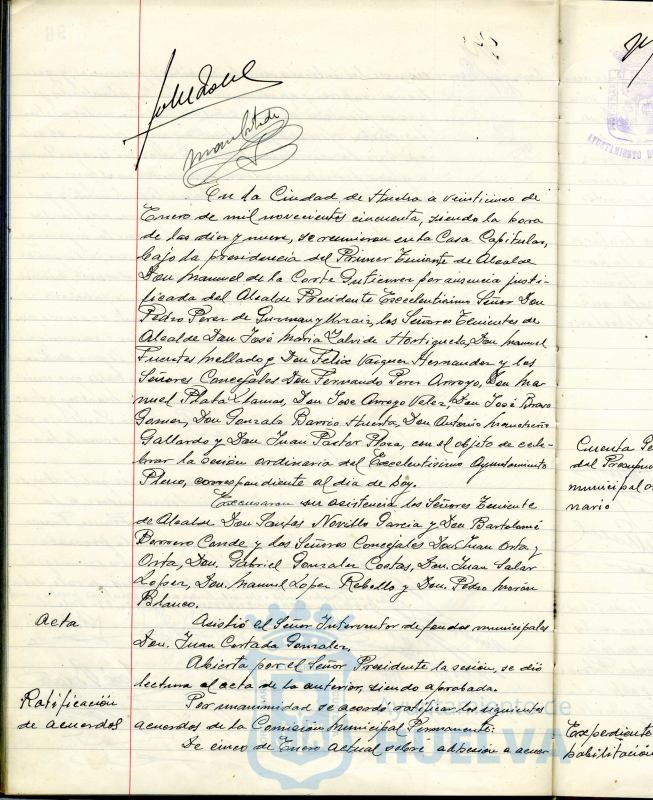 En la Ciudad de Huelva a veinticinco de
Enero de mil novecientos cincuenta, siendo la hora
de las diez y nueve, se reunieron en la Casa Capitular,
bajo la presidencia del Primer Teniente de Alcalde
Don Manuel de la Corte Gutierrez por ausencia justi-
ficada del Alcalde Presidente Excelentisimo Señor Don
Pedro Perez de Guzman y Urzaiz, los Señores Tenientes de
Alcalde Don José Maria Zalvide Hortiguela, Don Manuel
Fuentes Mellado y Don Felix Vazquez Hernandez y los
Señores Concejales Don Fernando Perez Arroyo, Don Ma-
nuel Plata Llamas, Don Jose Arroyo Velez, Don José Bravo
Gomez, Don Gonzalo Barrio Huerta, Don Antonio
Gallardo y Don Juan Pastor Plaza, con el objeto de cele-
brar la sesión ordinaria del Excelentisimo Ayuntamiento
Pleno, correspondiente al dia de hoy.
Excusaron su asistencia los Señores Teniente
de Alcalde Don Santos Novillo Garcia y Don Bartolomé
Borrero Conde y los Señores Concejales Don Juan Orta y
Orta, Don Gabriel Gonzalez Costas, Don Juan Salar
Lopez, Don Manuel López Rebollo y Don Pedro Morón
Blanco.
Acta
Asistió el Señor Interventor de fondos municipales
Don Juan Cortada Gonzalez,
Abierta por el Señor Presidente la sesión, se dió
lectura al acta de la anterior, siendo aprobada.
Ratificación
de acuerdos
Por unanimidad se acordo ratificar los siguientes
acuerdos de la Comisión Municipal Permanente:
De cinco de Enero actual sobre adhesión a acuer
Ayuntamiento de
HUELVA
AYUNTAMIENTO
Cuenta
del Presupu
municipal o
nario
Expediente
habilitación